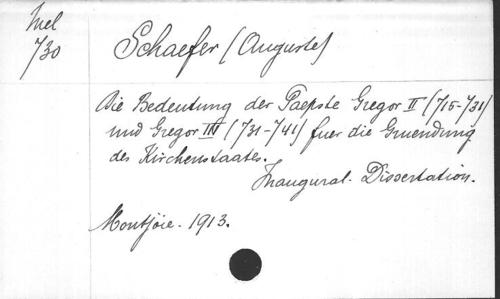 Mel
730
Schaefer (Auguste)
Die Bedeutung der Paepste Gregor II (715-731)
und Gregor III (731-741) fuer die Gruendung
des Kirchenstaates.
Inaugural. Dissertation.
Montjoie. 1913.